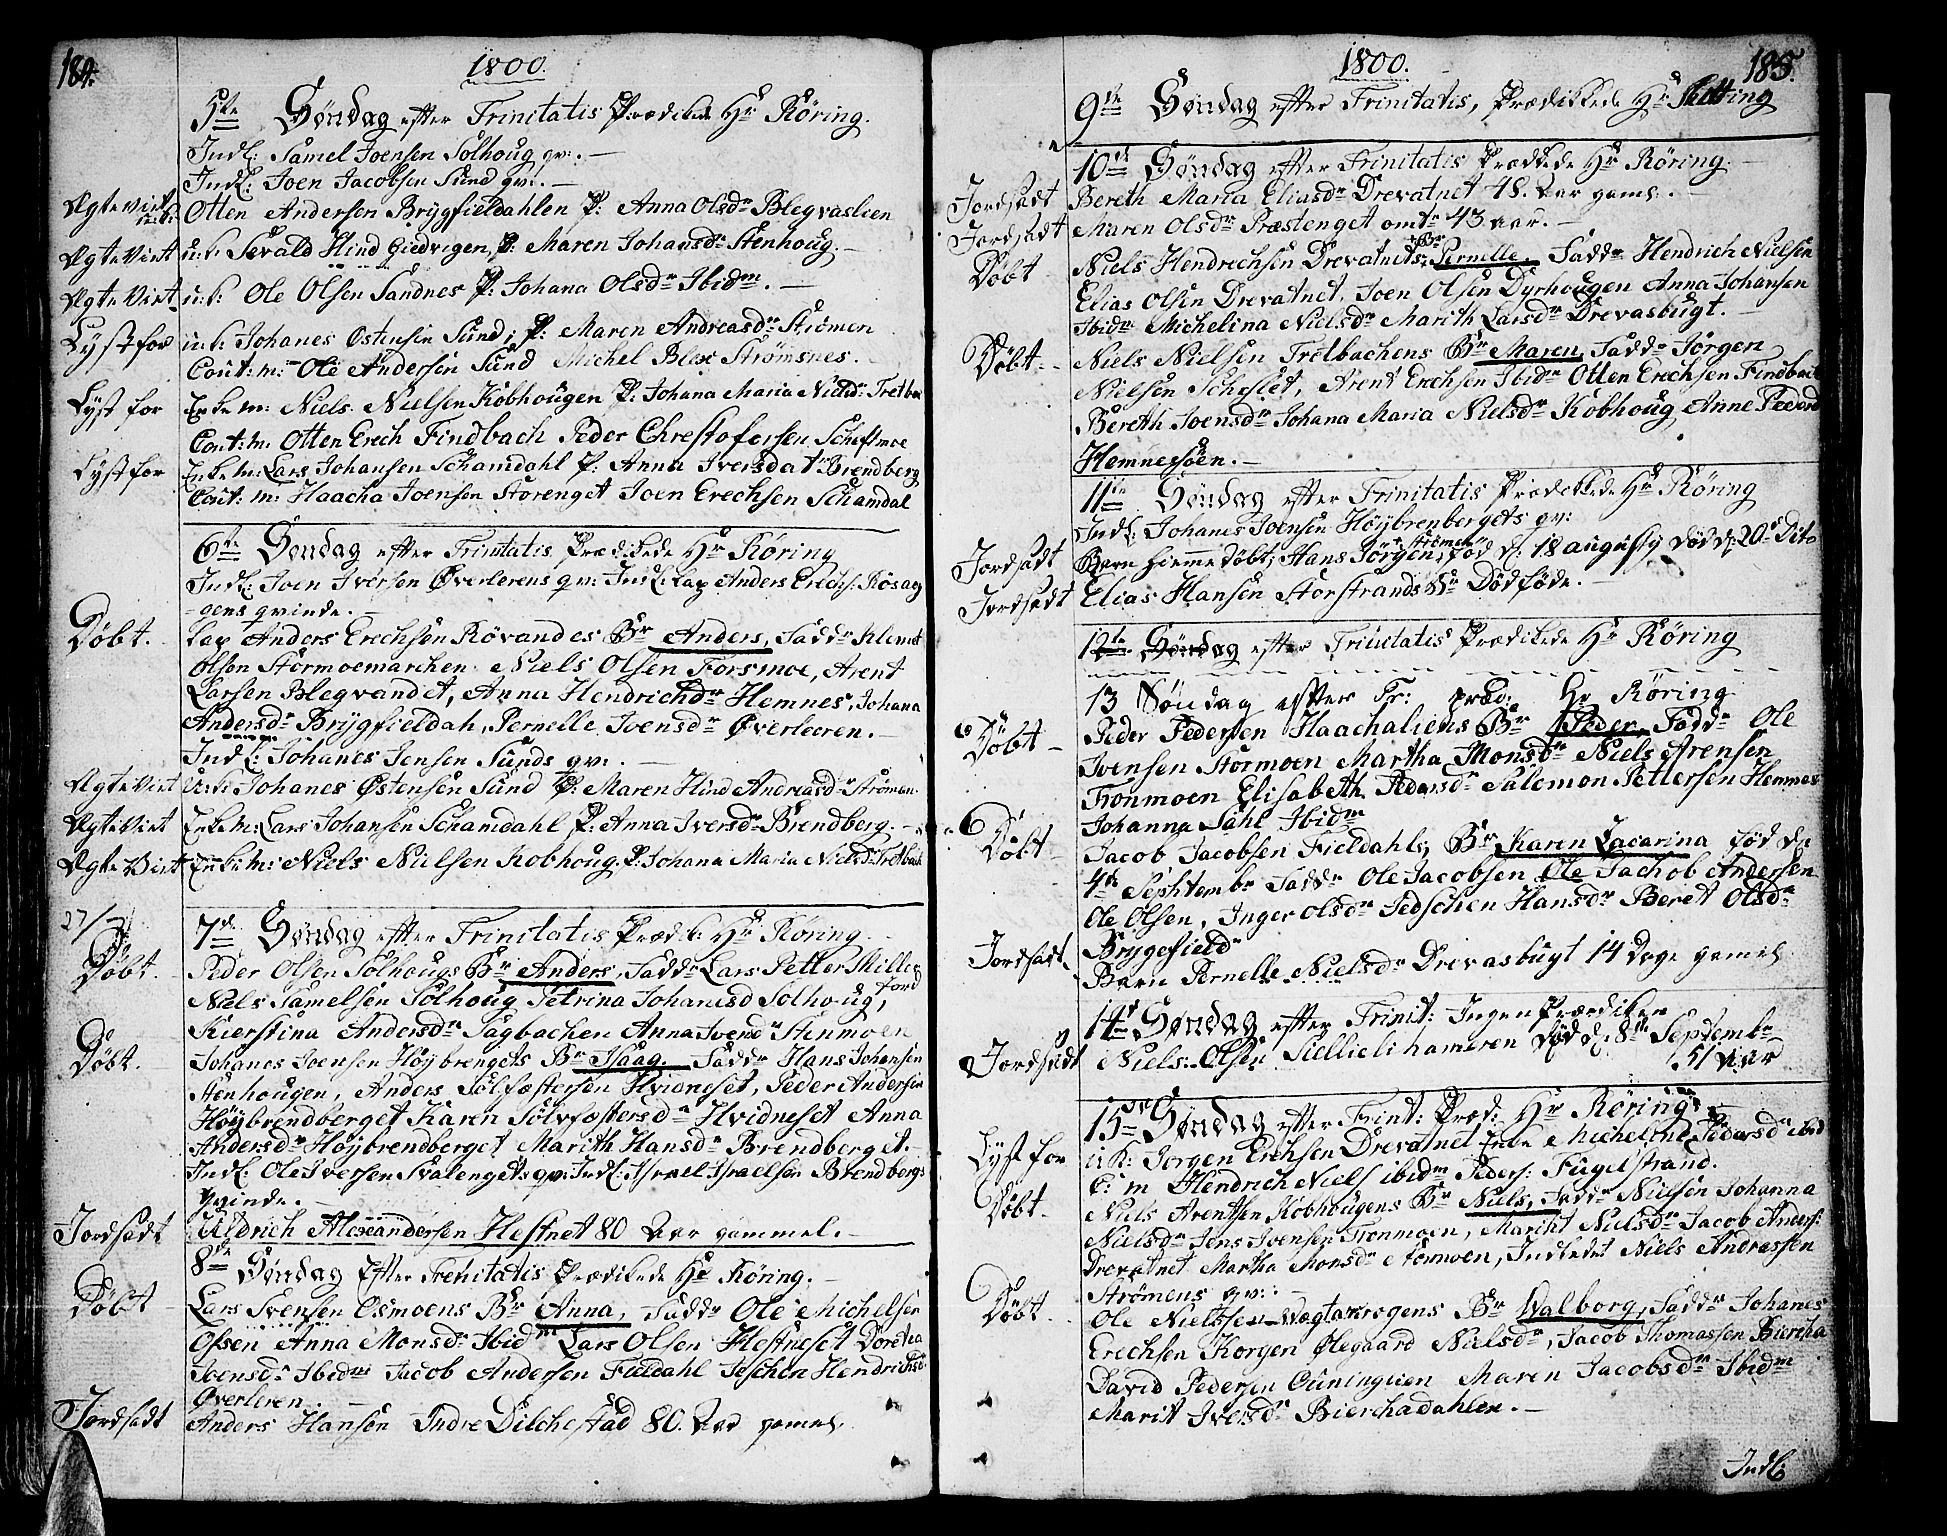 184.
1800.
5te Søndag efter Trinitatis Prædikede Hr Röring.
Indl: Samel Joensen Solhoug qv:. —
Indl: Joen Jacobsen Sund qvi. —
Ægteviet u:k: Otten Andersen Brygfieldahlen P: Anna Olsdr Blegvaslien
Ægteviet u:k: Sevald Hind Giedvigen, P: Maren Johansdr Stenhoug. —
Ægteviet u:k: Ole Olsen Sandnes P: Johana Olsdr Ibidm. —
Lyst for u:k: Johanes Ostensen Sund, P: Maren Andreasdr Strömen
Cout: m: Ole Andersen Sund Michel Blix Strömsnes.
Lyst for Enke m: Niels Nielsen Kobhougen P: Johana Maria Nielsdr Tretbac
Cout: m: Otten Erech Findbach Peder Chrestofersen Scheftmoe
Lyst for Enke m: Lars Johansen Schamdahl P: Anna Iversdatr Brendberg
Cout: m: Haacha Joensen Storenget Joen Erechsen Schamdal
6te Søndag efter Trinitatis Prædikede Hr Röring
Indl: Joen Iversen Øverlerens qv: Indl: Lap Anders Erechs: Rösag
gens qvinde. —
Döbt. Lap Anders Erechsen Rövandes Br Anders, Fadd: Klemet
Olsen Stormoemarchen Niels Olsen Forsmoe, Arent
Larsen Blegvandet, Anna Hendrichdr Hemnes, Johana
Andersdr Brygfieldah, Pernelle Ivensdr Øverleeren. —
Indl: Johanes Jensen Sunds qv:. —
Ægteviet u:k: Johanes Østensen Sund P: Maren Hind Andreasdr Strömen
Ægteviet Enke m: Lars Johansen Schamdahl P: Anna Iversdr Brendberg. —
Ægteviet Enke m: Niels Nielsen Kobhoug P: Johana Maria Nielsdr Tretbach
27/7
7de Søndag efter Trinitatis Prædik: Hr Röring. —
Döbt. Peder Olsen Solhougs Br Anders, Fadd: Lars Petter Miller
Niels Samelsen Solhoug Petrina Johanesd Solhoug,
Kierstina Andersdr Sagbachen Anna Ivendr Stenmoen
Döbt. Johanes Ivensen Höybrengets Br Isaag. Fadd: Hans Johansen
Stenhougen, Anders Sölfæstersen Hvidneset, Peder Andersen
Höybrendberget Karen Sölvfæstersdr Hvidneset Anna
Andersdr Höybrendberget Marith Hansdr Brendberget.
Indl: Ole Iversen Svalengets qv: Indl: Israel Israelsen Brendbergs
qvinde. —
Jordsadt Uldrich Alexandersen Hestnet 80 Aar gammel. —
8de Søndag Efter Trenitatis Prædikede Hr Röring. —
Döbt Lars Svensen Osmoens Br Anna, Fadd: Ole Michelsen
Olsen Anna Monsdr Ibidm Lars Olsen Hestneset Dorthea
Joensdr Ibidm Jacob Andersen Fieldahl Jeschen Hendrichsd
Øverleren. —
Jordsadt Anders Hansen Indre Dilchestad 80. Aar gamel
185.
1800.
9de Søndag efter Trinitatis, Prædikkede Hr Rutting
10de Søndag efter Trinitatis Prædkede Hr Röring. —
Jordsadt Bereth Maria Eliasdr Drevatnet 48. Aar gaml. —
Jordsadt Maren Olsdr Præstenget omtr 43 aar. —
Döbt Niels Hendrechsen Drevatnets Br Pernelle, Fadd: Hendrich Nielsen
Elias Olsen Drevatnet, Joen Olsen Dyrhougen Anna Johansen
Ibidm Michelina Nielsdr Marith Larsdr Drevasbugt. —
Döbt. Niels Nielsen Tretbachens Br Maren, Fadd: Jörgen
Nielsen Scheslet, Arent Erechsen Ibidm Otten Erechsen Findbach
Bereth Joensdr Johana Maria Nielsdr Kobhoug Anne Pedersd
Hemnessöen. —
11te Søndag efter Trinitatis Prædikkede Hr Röring
Indl: Johanes Ivensen Höybrenbergets qv:
Jordsadt Barn hiemmedöbt, Hans Jörgen, Strömen föd d: 18 augusty Död d: 20de Dito
Jordsadt Elias Hansen Storstrands Br Dödföde. —
12te Søndag efter Trinitatis Prædikede Hr Röring
13 Søndag efter Tr: præd: Hr Röring
Döbt Peder Pedersen Haachaliens Br Peder Fadd: Ole
Ivensen Stormoen Martha Monsdr Niels Arensen
Tronmoen Elisabeth Pedersdr Salemon Pettersen Hemnes
Johanna Sahl Ibidm
Döbt Jacob Jacobsen Fieldahls, Br Karen Zacarina föd de
4de Sephtembr Fadd: Ole Jacobsen Ole Jachob Andersen
Ole Olsen, Inger Olsdr Jedschen Hansdr Beret Olsdr
Brygefieldr
Jordsadt Barn Pernelle Nielsdr Drevasbugt 14 Dage gamel
14de Søndag efter Trinit: Ingen Prædiken
Jordsadt Niels Olsen Siellielihameren Död d: 8de Septembr
51 Aar
15de Søndag efter Trint: Præd: Hr Röring
Lyst for u: K: Jorgen Erchsen Drevatnet Enke Michelin Pedersdr ibid
C: m Hendrich Niels ibidm Peders: Fugelstrand.
Döbt. Niels Arentsen Kobhougens Br Niels, Fadd: Nielsen Johanna
Nielsdr Jens Ivensen Tronmoen, Marith Nielsdr Jacob Anders:
Drevatnet Martha Monsdr Stormoen, Indledet Niels Andrassen
Strömens qv:. —
Döbt. Ole Nielssen Vægtarkrogens Br Walborg, Fadd: Johanes
Erechsen Korgen Ølegaard Nielsdr, Jacob Thomassen Biercha
David Pedersen Maren Jacobsdr Ibidm
Marit Iversdr Bierchadahlen. —
Indl: